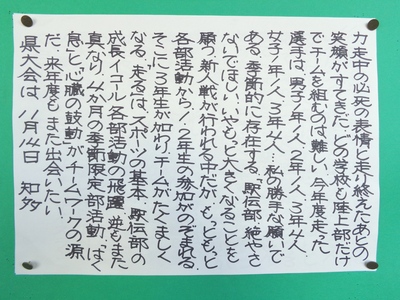 力走中の必死の表情と走り終えたあとの
笑顔がすてきだ。どの学校も陸上部だけ
でチームを組むのは難しい。今年度走った
選手は、男子1年1人、2年1人、3年4人、
女子1年1人、3年4人…。私の勝手な願いで
ある、季節的に存在する、駅伝部、絶やさ
ないでほしい、いや、もっと大きくなることを
願う。新人戦が行われる中だが、もっともっと
各部活動から1・2年生の参加がのぞまれる。
そこに3年生が加わりチームがたくましく
なる。走るは、スポーツの基本、駅伝部の
成長イコール各部活動の飛躍、逆もまた
真なり。4か月の季節限定部活動、「はく
息」と「心臓の鼓動」がチームワークの源
だ。来年度もまた出会いたい。
県大会は、11月14日 知多